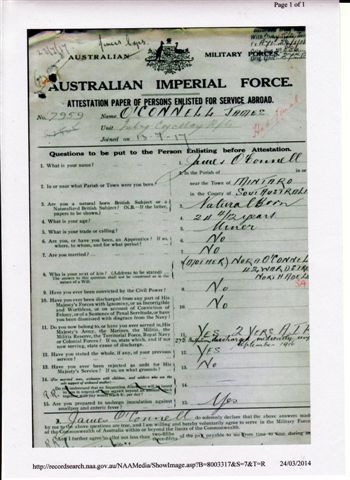 Page 1 of 1
James Rges.
AUSTRALIAN MILITARY FORCES.
AUSTRALIAN IMPERIAL FORCE.
ATTESTATION PAPER OF PERSONS ENLISTED FOR SERVICE ABROAD.
No. 7959 Name O'CONNELL JAMES
Unit
Joined on 13-7-17
Questions to be put to the Person Enlisting before Attestation.
1. What is your Name? 1. James O'Connell
2. In or near what Parish or Town were you born? 2. In the Parish of in or
near the Town of MINTARO
in the County of SOUTH AUSTRALIA
3. Are you a natural born British Subject or a Naturalized British Subject? (N.B.—If the latter, papers to be shown.) 3. Natural Born
4. What is your age? 4. 24 4/12 years
5. What is your trade or calling? 5. Miner
6. Are you, or have you been, an Apprentice? If so, where, to whom, and for what period? 6. No
7. Are you married? 7. No
8. Who is your next of kin? (Address to be stated) 8. (MOTHER) NORAH O'CONNELL
WARD ST
NORTH ADEL
SA
9. Have you ever been convicted by the Civil Power? 9. No
10. Have you ever been discharged from any part of His Majesty's Forces with Ignominy, or as Incorrigible and Worthless, or on account of Conviction of Felony, or of a Sentence of Penal Servitude, or have you been dismissed with Disgrace from the Navy? 10. No
11. Do you now belong to, or have you ever served in, His Majesty's Army, the Marines, the Militia, the Militia Reserve, the Territorial Reserve, Royal Navy or Colonial Forces? If so, state which, and if not now serving, state cause of discharge 11. Yes 2 YERS A.I.F
discharged medically unfit
September 1916
12. Have you stated the whole, if any, of your previous service? 12. Yes
13. Have you ever been rejected as unfit for His Majesty's Service? If so, on what grounds? 13. No
15. Are you prepared to undergo inoculation against smallpox and enteric fever? 15. Yes
I, James O'Connell do solemnly declare that the above answers made
by me to the above questions are true, and I am willing and hereby voluntarily agree to serve in the Military Forces
of the Commonwealth of Australia within or beyond the limits of the Commonwealth.
And I further agree to allot not less than of the pay payable to me from time to time during
http://recordsearch.naa.gov.au/NAAMedia/ShowImage.asp?B=8003317&S=7&T=R 24/03/2014